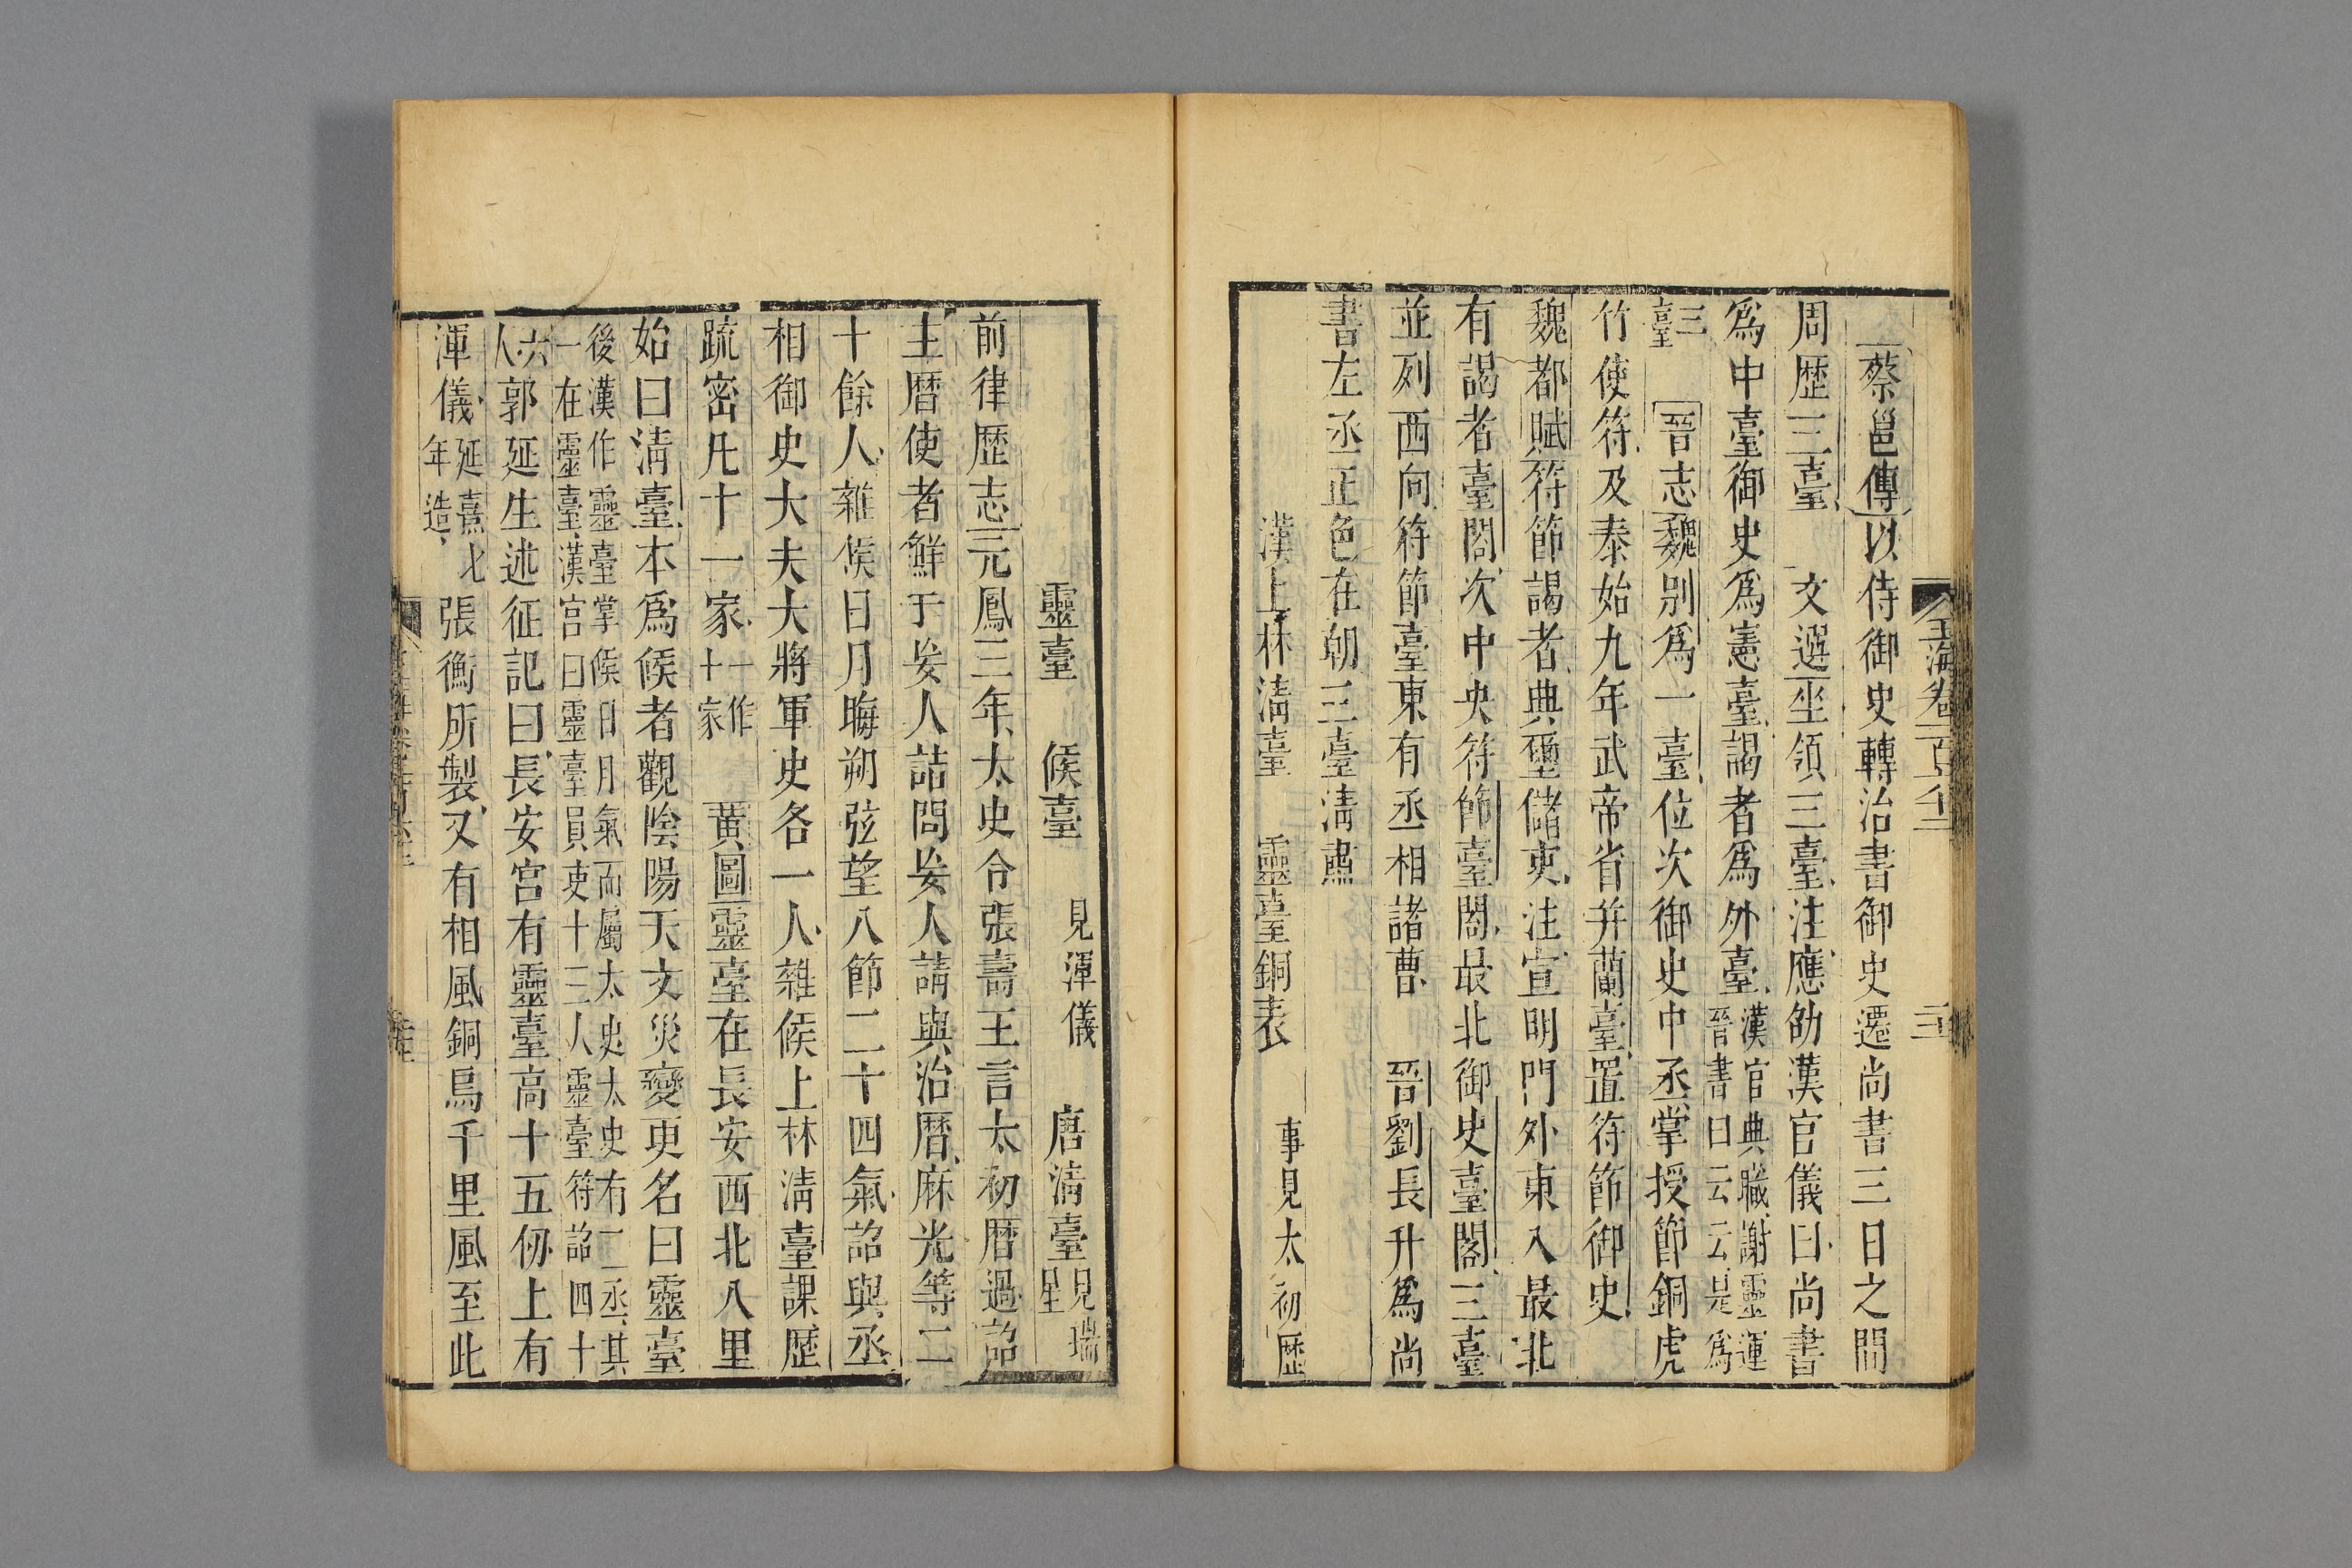 玉海卷一百六十二
蔡邕傳以侍御史轉治書御史遷尚書三日之間
周歴三臺 文選坐領三臺注應劭漢官儀曰尚書
爲中臺御史爲憲臺謁者爲外臺漢官典職謝靈運
晉書曰云云是爲
三臺 晉志魏別爲一臺位次御史中丞掌授節銅虎
竹使符及泰始九年武帝省并蘭臺置符節御史
魏都賦符節謁者典璽儲吏注宣明門外東入最北
有謁者臺閣次中央符節臺閣最北御史臺閣三臺
並列西向符節臺東有丞相諸曹 晉劉長升爲尚
書左丞正色在朝三臺清肅
漢上林清臺 靈臺銅表 事見太初歴
靈臺 候臺 見渾儀 唐清臺見瑞
星
前律歴志元鳳三年太史令張壽王言太初暦過詔
主暦使者鮮于妄人詰問妄人請與治暦麻光等二
十餘人雜候日月晦朔弦望八節二十四氣詔與丞
相御史大夫大將軍史各一人雜候上林清臺課歴
疏密凡十一家一作
十家 黃圖靈臺在長安西北八里
始曰清臺本爲候者觀陰陽天文災變更名曰靈臺
後漢作靈臺掌候日月氣而屬太史太史有二丞其
一在靈臺漢宮曰靈臺員吏十三人靈臺符詔四十
六
人郭延生述征記曰長安宮有靈臺高十五仞上有
渾儀延熹七
年造張衡所製又有相風銅烏千里風至此